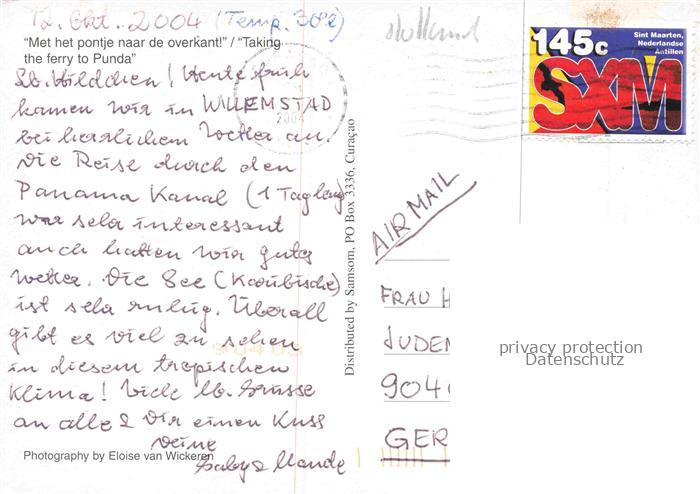 12. Okt. 2004 (Temp. 30°)
"Met het pontje naar de overkant!" / "Taking
the ferry to Punda"
Lb. Hildchen! Heute früh
kamen wir in WILLEMSTAD
bei herrlichem Wetter an.
Die Reise durch den
Panama Kanal (1 Tag lang)
war sehr interessant
auch hatten wir gutes
Wetter. Die See (Karibische)
ist sehr ruhig. Überall
gibt es viel zu sehen
in diesem tropischen
Klima! Viele lb. Grüsse
an alle & Dir einen Kuss
Deine
Photography by Eloise van Wickeren
Distributed by Samsom, PO Box 3336, Curaçao
Holland
145c
Sint Maarten,
Nederlandse
Antillen
SXM
2004
AIR MAIL
FRAU H
JUDEN
904
GER
privacy protection
Datenschutz